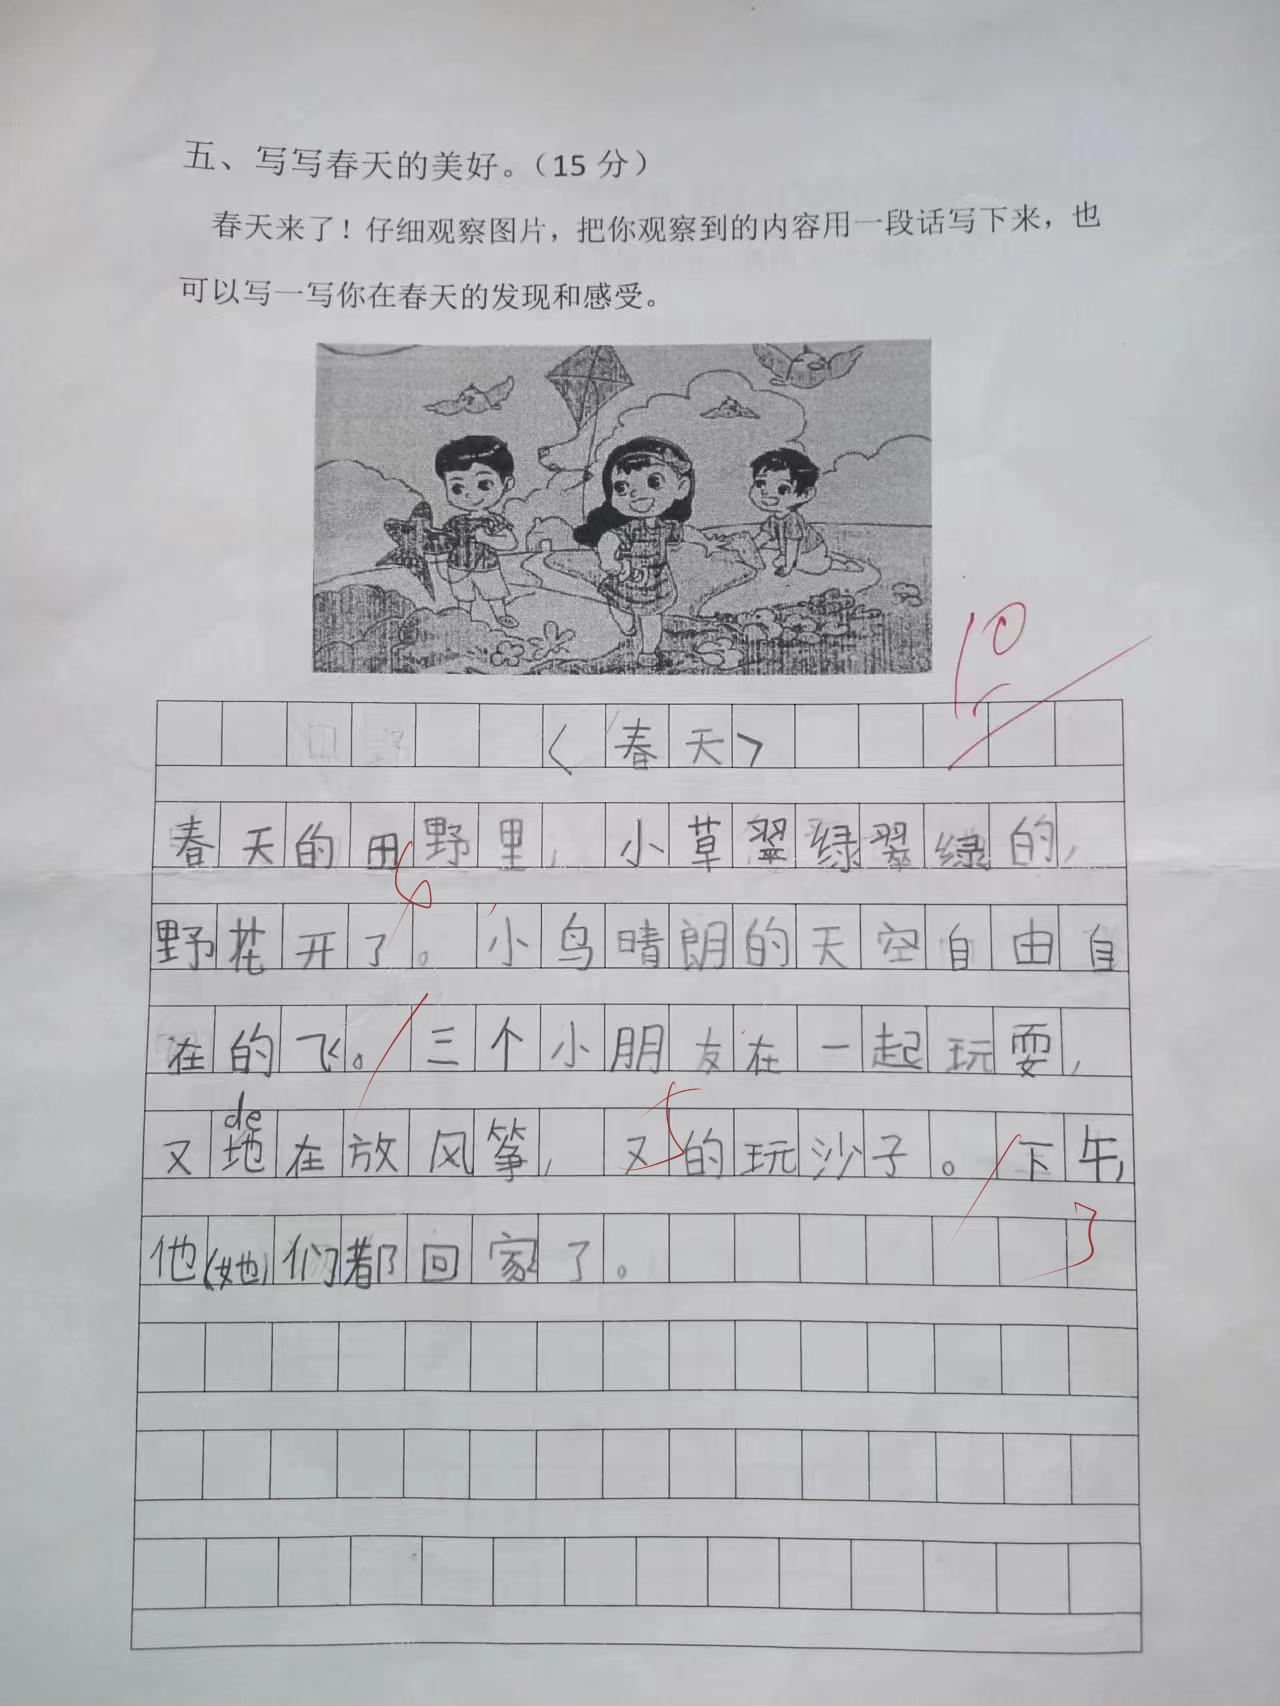 五、写写春天的美好。（15 分）
春天来了！仔细观察图片，把你观察到的内容用一段话写下来，也
可以写一写你在春天的发现和感受。
10
<春天>
春天的田野里，小草翠绿翠绿的，
野花开了。小鸟晴朗的天空自由自
在的飞。三个小朋友在一起玩耍，
de
又地在放风筝，又的玩沙子。下午，
他(她)们都回家了。